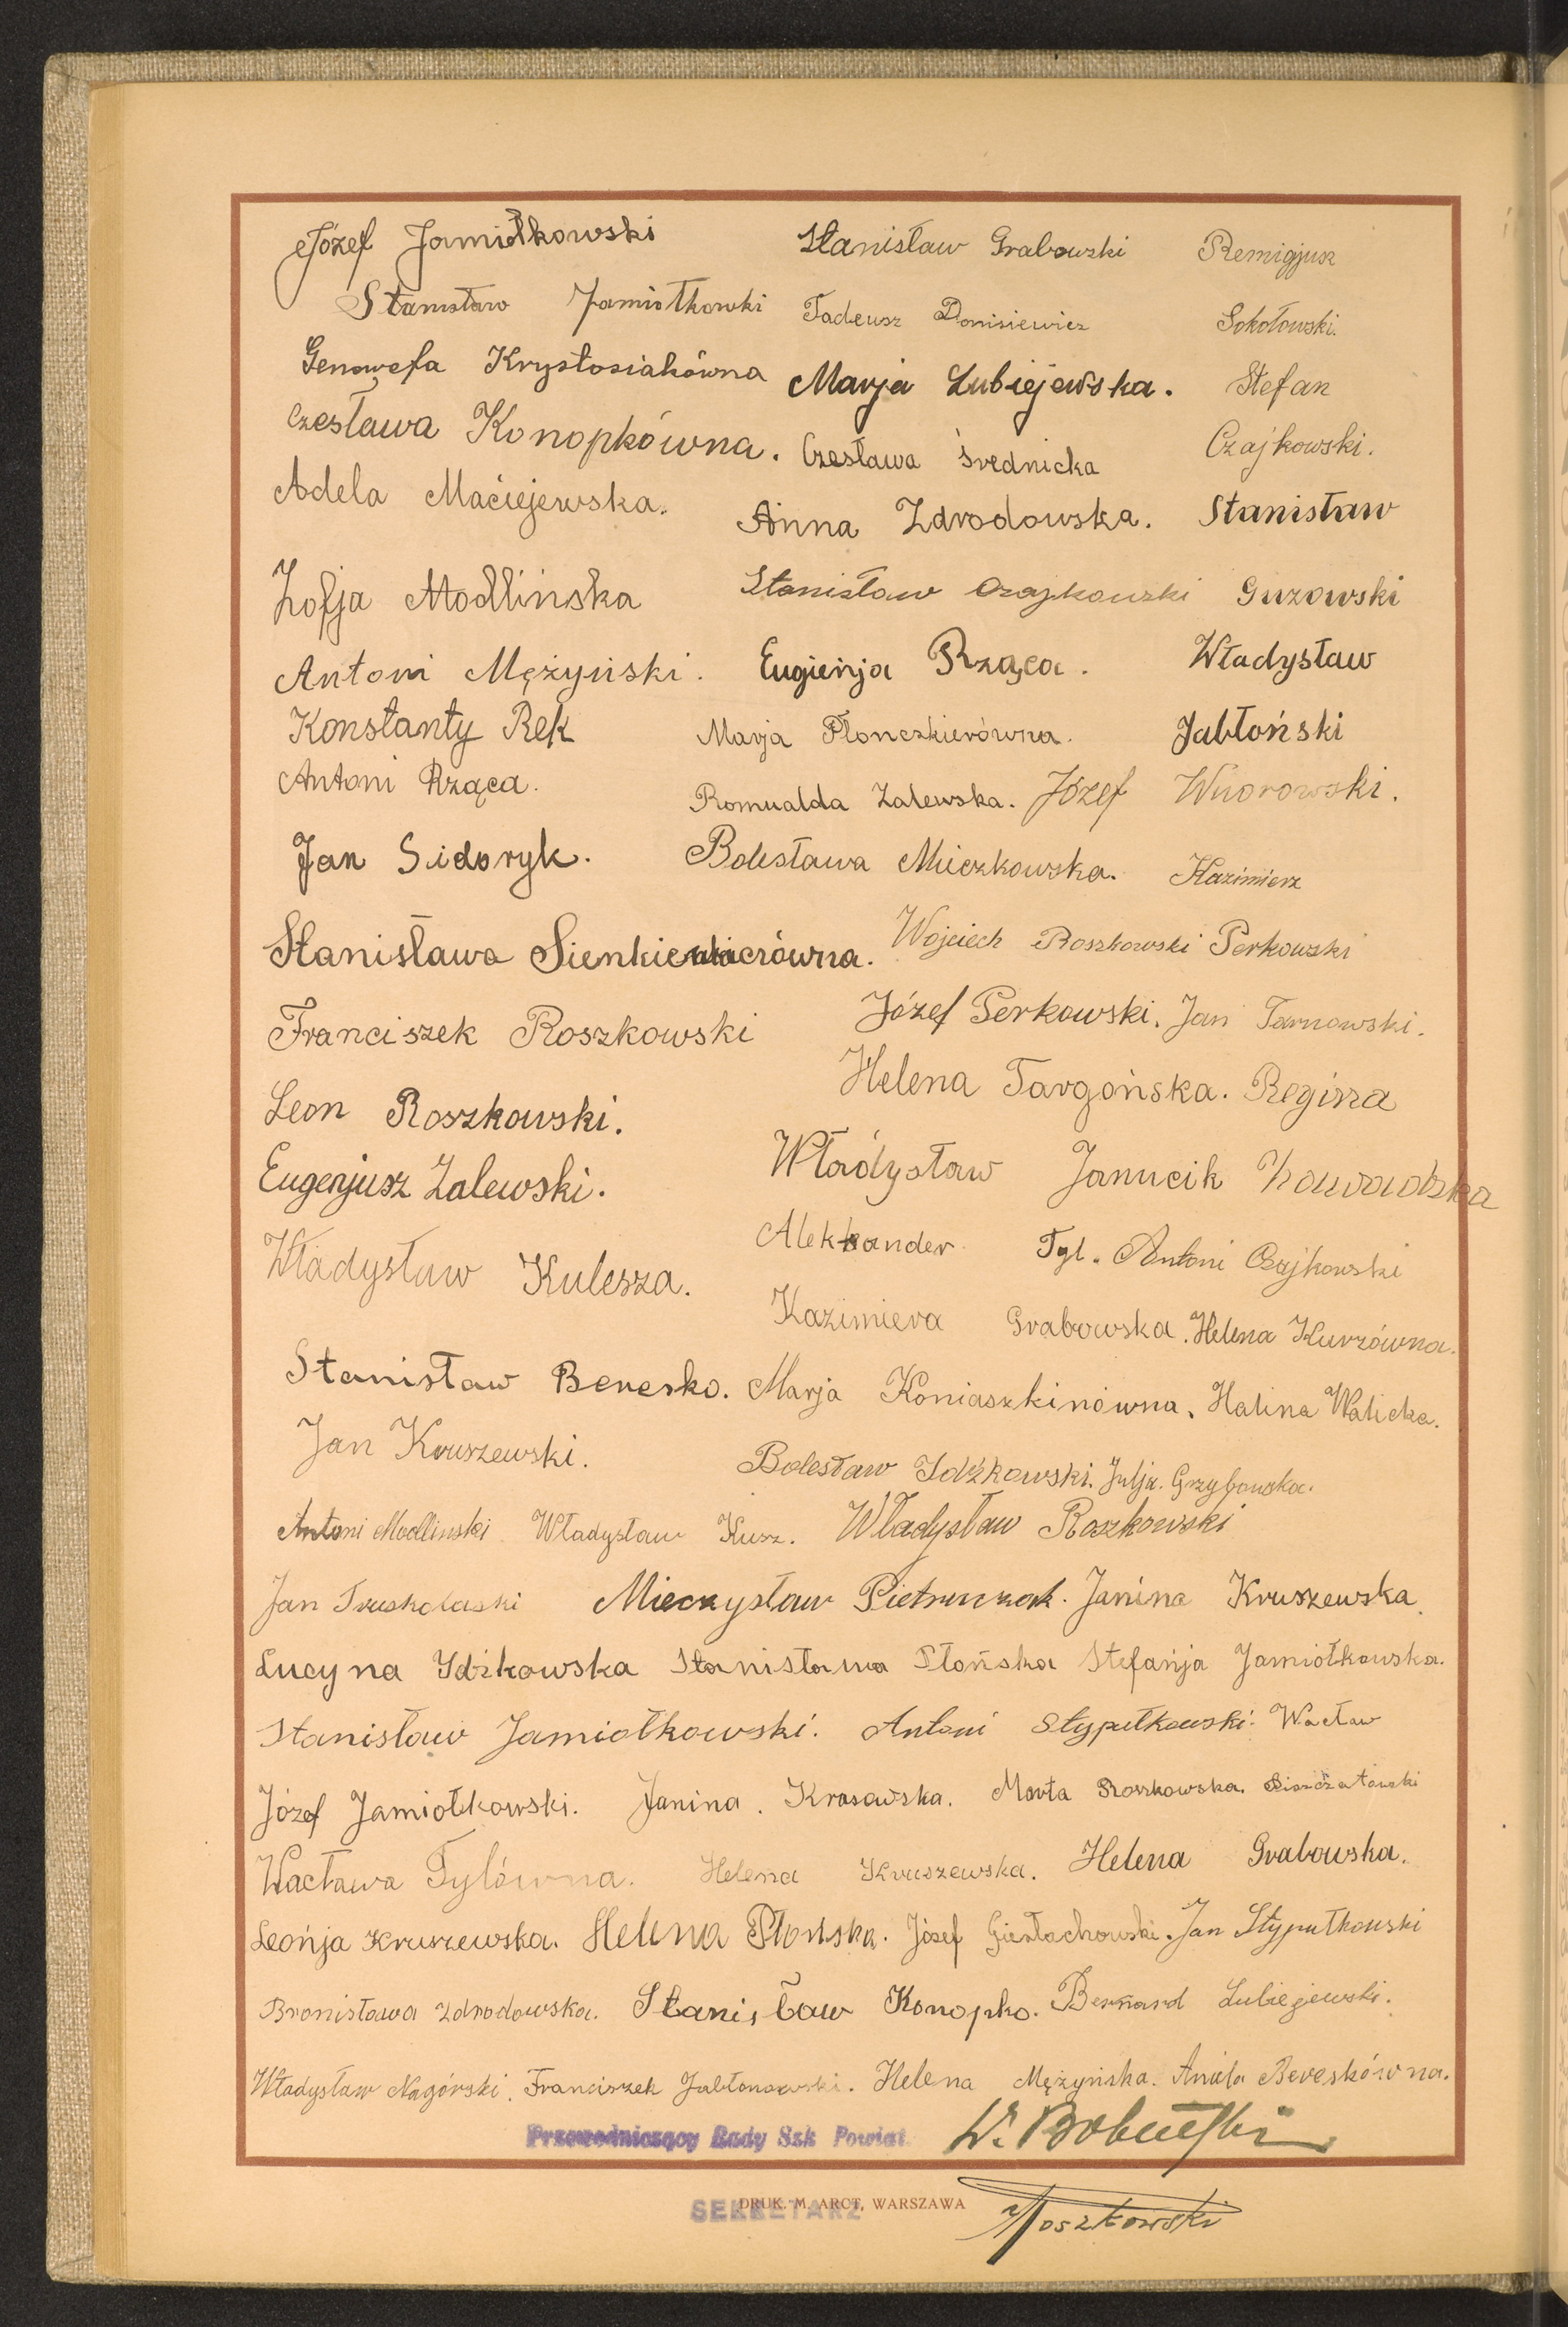 Józef Jamiołkowski Stanisław Grabowski Remigjusz
Stanisław Jamiołkowki Tadeusz Donisiewicz Sokołowski.
Genowefa Krystosiakówna Marja Lubiejewska. Stefan
Czesława Konopkówna. Czesława Średnicka Czajkowski.
Adela Maciejewska. Anna Zdrodowska. Stanisław
Zofja Modlińska Stanisław Czajkowski Guzowski
Antoni Mężyński. Eugienja Rząca. Władysław
Konstanty Rek Marja Płonczkierówna. Jabłoński
Antoni Rząca. Romualda Zalewska. Józef Wnorowski.
Jan Sidoryk. Bolesława Mieczkowska. Kazimierz
Stanisława Sienkiewiczówna. Wojciech Roszkowski Perkowski
Franciszek Roszkowski Józef Perkowski. Jan Tarnowski.
Leon Roszkowski. Helena Targońska. Regina
Eugenjusz Zalewski. Władysław Janucik Zawadzka
Władysław Kulesza. Aleksander Tyl. Antoni Czajkowski
Kazimiera Grabowska. Helena Kurzówna.
Stanisław Beresko. Marja Koniaszkinówna. Halina Walicka.
Jan Kruszewski. Bolesław Idźkowski. Julja. Grzybowska.
Antoni Modlinski Władysław Kusz. Władysław Roszkowski
Jan Truskolaski Mieczysław Pietruczak. Janina Kruszewska.
Lucyna Idźkowska Stanisława Płońska Stefanja Jamiołkowska.
Stanisław Jamiołkowski. Antoni Stypułkowski. Wacław
Józef Jamiołkowski. Janina. Krasowska. Marta Roszkowska.
Wacława Tylówna. Helena Kruszewska. Helena Grabowska.
Leonja Kruszewska. Helena Płońska. Józef Jan Stypułkowski
Bronisława Zdrodowska. Stanisław Konopko. Bernard Lubiejewski.
Władysław Nagórski. Franciszek Jabłonowski. Helena Mężyńska. Aniela Bereskówna.
Przewodniczący Rady Szk Powiat.
SEKRETARZ
DRUK. M. ARCT, WARSZAWA